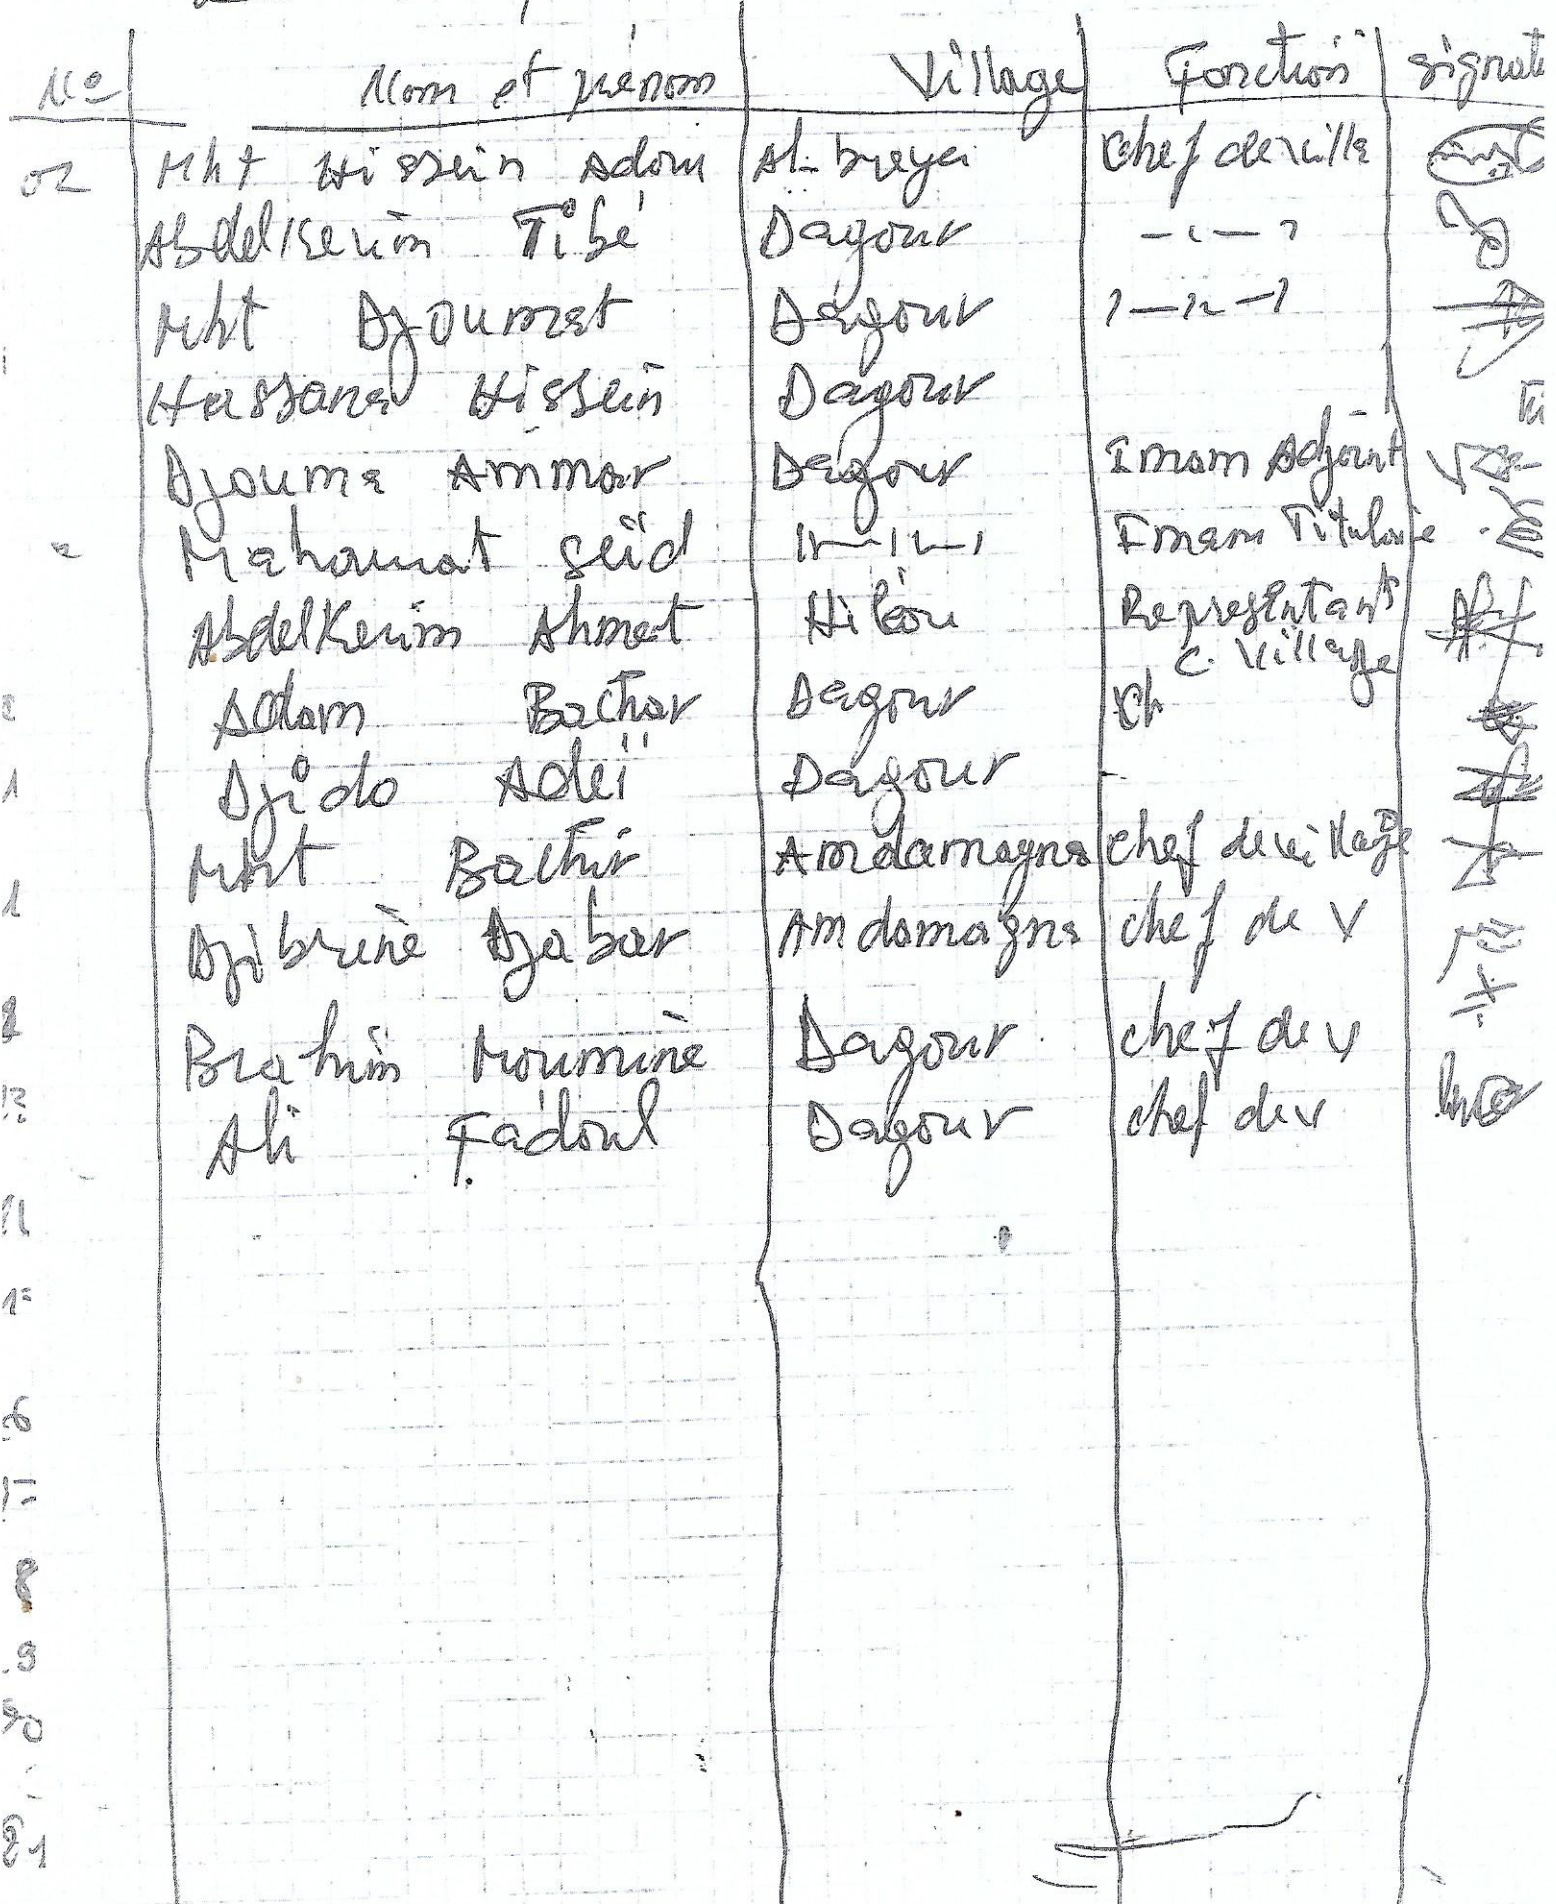 N° Nom et prénom Village Fonction signat
02 Mht Hissein Adom Al-breya Chef de ville
Abdelkerim Tibé Dagour -ı-ı
Mht Djoumat Dagour ı-ıı-ı
Hassana Hissein Dagour
Djouma Ammar Dagour Imam Adjoint
Mahamat seïd ıı-ıı-ı Imam Titulaire
Abdelkerim Ahmat Hiléou Representant
C. Village
Adam Bachar Dagour Ch
Djido Adeï Dagour -
Mht Bachir Amdamagna chef de village
Djibrinè Djabar Amdamagna chef de V
Brahim Mouminè Dagour chef de V
Ali Fadoul Dagour chef de v
8
9
21